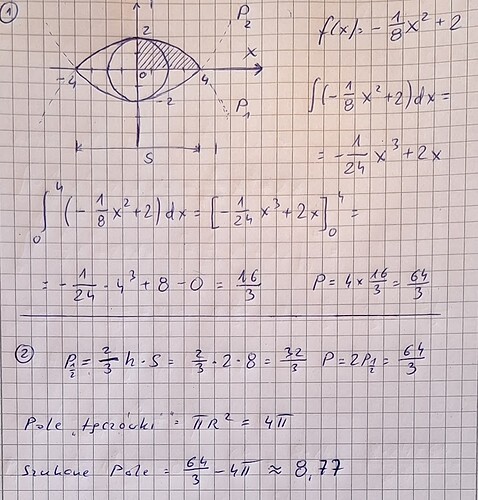 ①
P₂
2
-4
0
4
x
-2
P₁
S
f(x) = -1/8 x² + 2
∫(-1/8 x² + 2) dx =
= -1/24 x³ + 2x
∫₀⁴ (-1/8 x² + 2) dx = [-1/24 x³ + 2x]₀⁴ =
= -1/24 · 4³ + 8 - 0 = 16/3 P = 4 × 16/3 = 64/3
② P½ = 2/3 h · S = 2/3 · 2 · 8 = 32/3 P = 2P½ = 64/3
Pole „tęczówki” = πR² = 4π
Szukane Pole = 64/3 - 4π ≈ 8,77